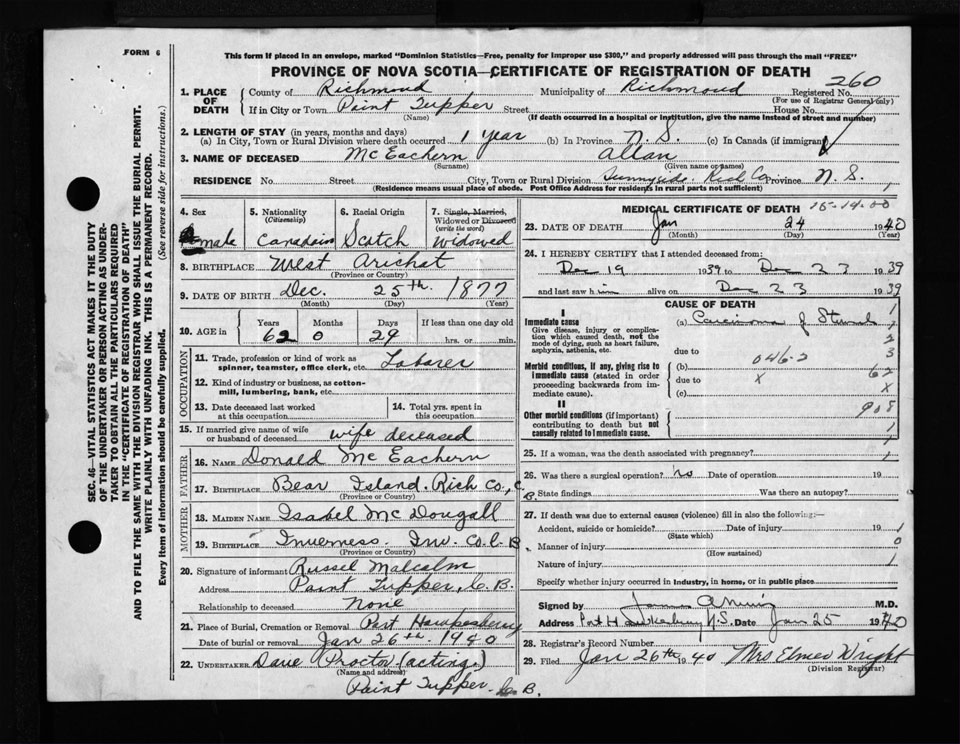 FORM 6
This form if placed in an envelope, marked "Dominion Statistics—Free, penalty for improper use $300," and properly addressed will pass through the mail "FREE"
PROVINCE OF NOVA SCOTIA—CERTIFICATE OF REGISTRATION OF DEATH
260
1. PLACE OF DEATH
County of Richmond Municipality of Richmond Registered No.
(For use of Registrar General only)
If in City or Town Point Tupper Street House No.
(Name) (If death occurred in a hospital or institution, give the name instead of street and number)
2. LENGTH OF STAY (in years, months and days)
(a) In City, Town or Rural Division where death occurred 1 year (b) In Province N. S. (c) In Canada (if immigrant)
3. NAME OF DECEASED McEachern Allan
(Surname) (Given name or names)
RESIDENCE No. Street City, Town or Rural Division Sunnyside. Rich Co Province N. S.
(Residence means usual place of abode. Post Office Address for residents in rural parts not sufficient)
4. Sex male
5. Nationality (Citizenship) Canadian
6. Racial Origin Scotch
7. Single, Married, Widowed or Divorced (write the word) Widowed
8. BIRTHPLACE West Arichat
(Province or Country)
9. DATE OF BIRTH Dec. 25th. 1877
(Month) (Day) (Year)
10. AGE in Years 62 Months 0 Days 29 If less than one day old hrs. or min.
OCCUPATION
11. Trade, profession or kind of work as spinner, teamster, office clerk, etc. Laborer
12. Kind of industry or business, as cotton-mill, lumbering, bank, etc.
13. Date deceased last worked at this occupation
14. Total yrs. spent in this occupation
15. If married give name of wife or husband of deceased wife deceased
FATHER
16. NAME Donald McEachern
17. BIRTHPLACE Bear Island. Rich Co, C. B.
(Province or Country)
MOTHER
18. MAIDEN NAME Isabel McDougall
19. BIRTHPLACE Inverness. Inv. Co. C. B
(Province or Country)
20. Signature of informant Russel Malcolm
Address Point Tupper, C. B.
Relationship to deceased None
21. Place of Burial, Cremation or Removal Port Hawkesbury
Date of burial or removal Jan 26th. 1940
22. UNDERTAKER Dave Proctor (acting.)
(Name and address)
Point Tupper. C. B.
MEDICAL CERTIFICATE OF DEATH 15-14-00
23. DATE OF DEATH Jan 24 1940
(Month) (Day) (Year)
24. I HEREBY CERTIFY that I attended deceased from:
Dec 19 1939 to Dec 23 1939
and last saw him alive on Dec 23 1939
CAUSE OF DEATH
I
Immediate cause
Give disease, injury or complication which caused death, not the mode of dying, such as heart failure, asphyxia, asthenia, etc.
(a) Carcinoma of
due to
046-2
Morbid conditions, if any, giving rise to immediate cause (stated in order proceeding backwards from immediate cause).
(b)
due to x
(c)
II
Other morbid conditions (if important) contributing to death but not causally related to immediate cause.
1
2
3
62
X
908
1
1
25. If a woman, was the death associated with pregnancy?
26. Was there a surgical operation? no Date of operation 19
State findings Was there an autopsy?
27. If death was due to external causes (violence) fill in also the following:—
Accident, suicide or homicide? Date of injury 19 1
(State which)
Manner of injury 0
(How sustained)
Nature of injury 1
Specify whether injury occurred in industry, in home, or in public place
Signed by M.D.
Address Port Hawkesbury N.S. Date Jan 25 1940
28. Registrar's Record Number
29. Filed Jan 26th 1940 Mrs Elmer Wright
(Division Registrar)
SEC. 46—VITAL STATISTICS ACT MAKES IT THE DUTY
OF THE UNDERTAKER OR PERSON ACTING AS UNDERTAKER
TO OBTAIN ALL THE PARTICULARS REQUIRED
IN THE "CERTIFICATE OF REGISTRATION OF DEATH"
AND TO FILE THE SAME WITH THE DIVISION REGISTRAR WHO SHALL ISSUE THE BURIAL PERMIT.
WRITE PLAINLY WITH UNFADING INK. THIS IS A PERMANENT RECORD.
Every item of information should be carefully supplied. (See reverse side for instructions.)